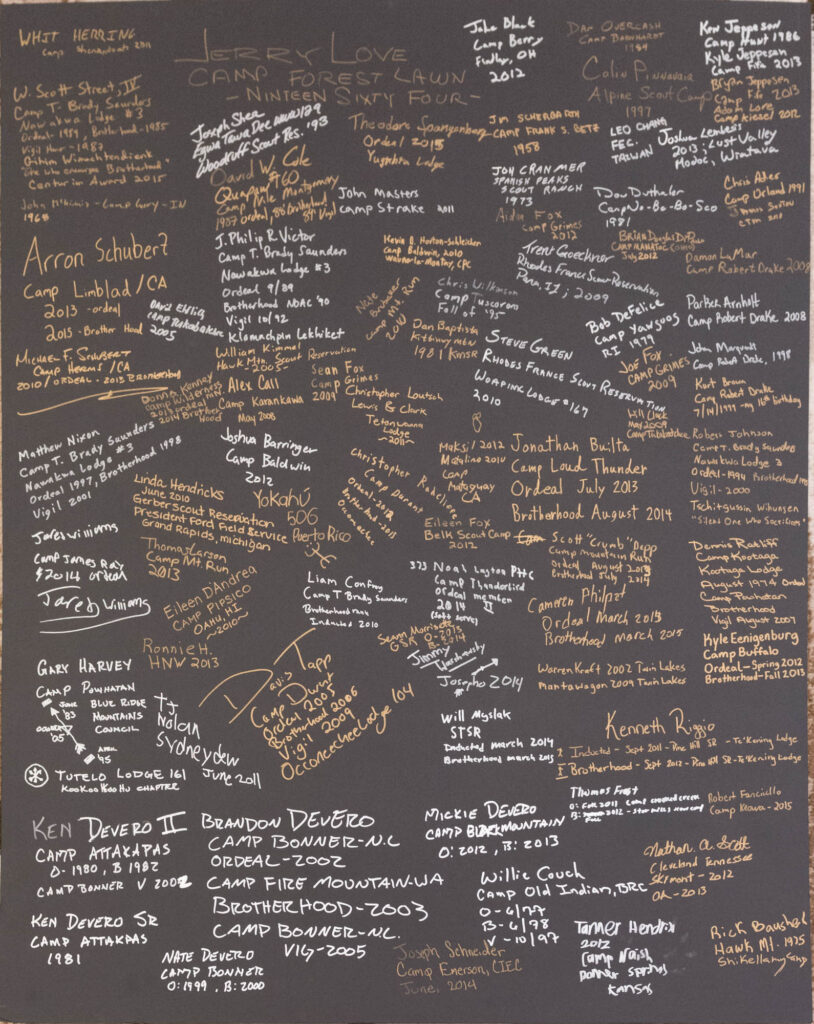 WHIT HERRING
Camp Shenandoah 2011
JERRY LOVE
CAMP FOREST LAWN
- NINTEEN SIXTY FOUR -
Jake Blank
Camp Berry
Findlay, OH
2012
DAN OVERCASH
CAMP BARNHARDT
1984
Colin Pinnavaia
Alpine Scout Camp
1997
Ken Jeppeson
Camp Hunt 1986
Kyle Jeppesen
Camp Fife 2013
Bryan Jeppesen
Camp Fife 2013
Adam Lore
Camp Kiesel 2012
W. Scott Street, IV
Camp T. Brady Saunders
Nawakwa Lodge #3
Ordeal-1984, Brotherhood-1985
Vigil Hon-1987
"He who encourages Brotherhood"
Centurion Award 2015
John McKinnis - Camp Gary - IN
1968
Joseph Shea
Woodruff Scout Res. '93
Theodore Spangenberg
Ordeal 2015
Yugnhra Lodge
Jim SCHERBARTH
CAMP FRANK S. BETZ
1958
LEO CHANG
FEC.
TAIWAN
Joshua Lendesis
2013; Lust Valley
Modoc, Wiratava
David W. Cole
Quapaw #60
Camp Pile Montgomery
1987 Ordeal, 88 Brotherhood, 89 Vigil
John Masters
Camp Strake 2011
JON CRANMER
SPANISH PEAKS
SCOUT RANCH
1973
Don Duthaler
Camp No-Be-Bo-Sco
1981
Chris Adler
Camp Orland 1991
Aidan Fox
Camp Grimes
2012
Arron Schubert
Camp Limblad/CA
2013 - ordeal
2015 - Brother Hood
J. Philip R. Victor
Camp T. Brady Saunders
Nawakwa Lodge #3
Ordeal 9/89
Brotherhood NOAC '90
Vigil 10/92
Klomachpin Lekhiket
Kevin B. Horton-Schleicher
Camp Baldwin, 2010
Wauna-La-Montay, CPC
Trent Goeckner
Rhodes France Scout Reservation
Pana, Il; 2009
July 2012
Damon LaMar
Camp Robert Drake 2008
David Ehlig
2005
Nate Brubaker
Camp Mt. Run
2010
Chris Wilkinson
Camp Tuscorora
Fall of '95
Dan Baptista
Kittatinny Mtn
1981 KMSR
Bob DeFelice
CAMP YAWGOOG
RI 1979
Parker Arnholt
Camp Robert Drake 2008
Michael F. Schubert
Camp Herms/CA
2010/ORDEAL - 2013 Brotherhood
William Kimmel
Hawk Mtn. Scout Reservation
2005
STEVE GREEN
RHODES FRANCE SCOUT RESERVATION
WOAPINK LODGE #167
2010
Joe Fox
CAMP GRIMES
2009
John Marquardt
Camp Robert Drake, 1998
Donna Kenney
Camp Wilderness
2013 ordeal NM
2014 Brotherhood
Alex Call
Camp Karankawa
May 2008
Sean Fox
Camp Grimes
2009
Christopher Loutsch
Lewis & Clark
Tetonwana Lodge
~2011~
Will Clark
May 2009
Camp Tukabatchee
Kurt Braun
Camp Robert Drake
7/14/1999 - my 18th birthday
Matthew Nixon
Camp T. Brady Saunders
Nawakwa Lodge #3
Ordeal 1997, Brotherhood 1998
Vigil 2001
Joshua Barringer
Camp Baldwin
2012
Maksil 2012
Matalino 2014
Camp
Mataguay
CA
Jonathan Builta
Camp Loud Thunder
Ordeal July 2013
Brotherhood August 2014
Robert Johnson
Camp T. Brady Saunders
Nawakwa Lodge 3
Ordeal-1994 Brotherhood 1995
Vigil-2000
Tschitgussin Wihunsen
"Silent One Who Sacrifices"
Linda Hendricks
June 2010
Gerber Scout Reservation
President Ford Field Service
Grand Rapids, Michigan
Yokahú
506
Puerto Rico
Christopher Radcliffe
Camp Durant
Ordeal-2012
Brotherhood-2013
Occoneechee
Eileen Fox
Belk Scout Camp
2012
Scott "Crumb" Depp
Camp Mountain Run
Ordeal August 2013
Brotherhood July 2014
Jared Williams
Camp James Ray
2014 ordeal
Jared Williams
Thomas Larson
Camp Mt Run
2013
Liam Confroy
Camp T Brady Saunders
Brotherhood rank
Inducted 2010
373 Noal Layton PHC
Camp Thunderbird
Ordeal member
2014
Cameron Philpot
Ordeal March 2013
Brotherhood March 2015
Dennis Ratliff
Camp Kootaga
Kootaga Lodge
August 1974 Ordeal
Camp Powhatan
Brotherhood
Vigil August 2007
Eileen D'Andrea
CAMP PIPSICO
OAHU, HI
~2010~
Sean Morrisette
GSR O-2013
B-2014
Jimmy
Josepho 2014
Ronnie H.
HNW 2013
Davis Tapp
Camp Durant
Ordeal 2005
Brotherhood 2006
Vigil 2009
Occoneechee Lodge 104
Warren Kraft 2002 Twin Lakes
Mantowagon 2009 Twin Lakes
Kyle Eenigenburg
Camp Buffalo
Ordeal-Spring 2012
Brotherhood-Fall 2013
GARY HARVEY
CAMP POWHATAN
BLUE RIDGE
MOUNTAINS
COUNCIL
JUNE '83
OCTOBER '85
APRIL '95
TUTELO LODGE 161
KOO KOO KOO HU CHAPTER
TJ
Nolan
Sydney dew
June 2011
Will Myslak
STSR
Inducted march 2014
Brotherhood march 2015
Kenneth Riggio
I Inducted - Sept 2011 - Pine Hill SR - Te'Kening Lodge
I Brotherhood - Sept 2012 - Pine Hill SR - Te'Kening Lodge
Thomas Frost
Robert Fanciullo
Camp Keowa - 2015
KEN DEVERO II
CAMP ATTAKAPAS
O-1980, B 1982
CAMP BONNER V 2002
BRANDON DEVERO
CAMP BONNER-N.C
ORDEAL-2002
CAMP FIRE MOUNTAIN-WA
BROTHERHOOD-2003
CAMP BONNER-NC.
VIG-2005
MICKIE DEVERO
CAMP BLACK MOUNTAIN
O: 2012, B: 2013
Nathan A. Scott
Cleveland Tennessee
Skymont - 2012
OA - 2013
KEN DEVERO SR
CAMP ATTAKPAS
1981
Willie Couch
Camp Old Indian, BRC
O-6/77
B-6/78
V-10/97
NATE DEVERO
CAMP BONNER
O: 1999, B: 2000
Joseph Schneider
Camp Emerson, CIEC
June, 2014
Tanner Hendrix
2012
Camp Naish
Bonner Springs
Kansas
Rick Baushel
Hawk Mt. 1975
Shikellamy